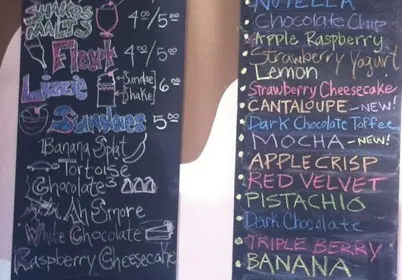 SHAKES
MALTS 4⁰⁰/5⁰⁰
Float 4⁰⁰/5⁰⁰
Lizzie Sundae Shake 6⁰⁰
Sundaes 5⁰⁰
Banana Split
Tortoise
Chocolate³
Ah S'more
White Chocolate
Raspberry Cheesecake
NUTELLA
Chocolate Chip
Apple Raspberry
Strawberry Yogurt
Lemon
Strawberry Cheesecake
CANTALOUPE -NEW!
Dark Chocolate Toffee
MOCHA -NEW!
APPLE CRISP
RED VELVET
PISTACHIO
Dark Chocolate
TRIPLE BERRY
BANANA